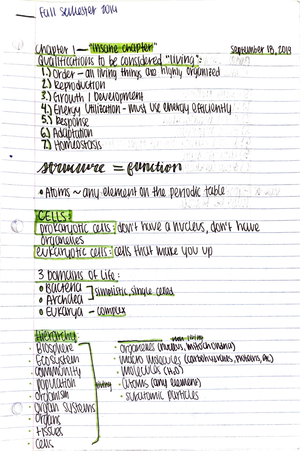 Fall Semester 2019
Chapter 1 - "insane chapter" September 18, 2019
Qualifications to be considered "living":
1.) Order - all living things are highly organized
2.) Reproduction
3.) Growth / Development
4.) Energy Utilization - must use energy efficiently
5.) Response
6.) Adaptation
7.) Homeostasis
structure = function
• Atoms ~ any element on the periodic table
CELLS:
prokaryotic cells: don't have a nucleus, don't have
organelles
eukaryotic cells: cells that make you up
3 Domains of Life:
• Bacteria
• Archaea ] simplistic, single celled
• Eukarya - complex
Hierarchy non living
• biosphere • organelles (nucleus, mitochondria)
• Ecosystem • macro molecules (carbohydrates, proteins, etc)
• community • molecules (H₂O)
• population living • atoms (any element)
• organism • subatomic particles
• organ systems
• organs
• tissues
• cells